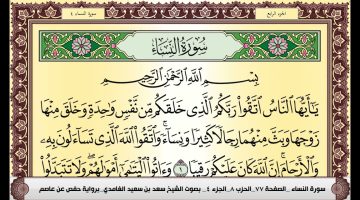 الجزء الرابع
سورة النساء ٤
سُورَةُ النِّسَاءِ
بِسْمِ اللَّهِ الرَّحْمَٰنِ الرَّحِيمِ
يَا أَيُّهَا النَّاسُ اتَّقُوا رَبَّكُمُ الَّذِي خَلَقَكُم مِّن نَّفْسٍ وَاحِدَةٍ وَخَلَقَ مِنْهَا
زَوْجَهَا وَبَثَّ مِنْهُمَا رِجَالًا كَثِيرًا وَنِسَاءً ۚ وَاتَّقُوا اللَّهَ الَّذِي تَسَاءَلُونَ بِهِ
وَالْأَرْحَامَ ۚ إِنَّ اللَّهَ كَانَ عَلَيْكُمْ رَقِيبًا ١ وَآتُوا الْيَتَامَىٰ أَمْوَالَهُمْ ۖ وَلَا تَتَبَدَّلُوا
سورة النساء _ الصفحة ٧٧_ الحزب ٨_ الجزء ٤_ بصوت الشيخ سعد بن سعيد الغامدي_ برواية حفص عن عاصم